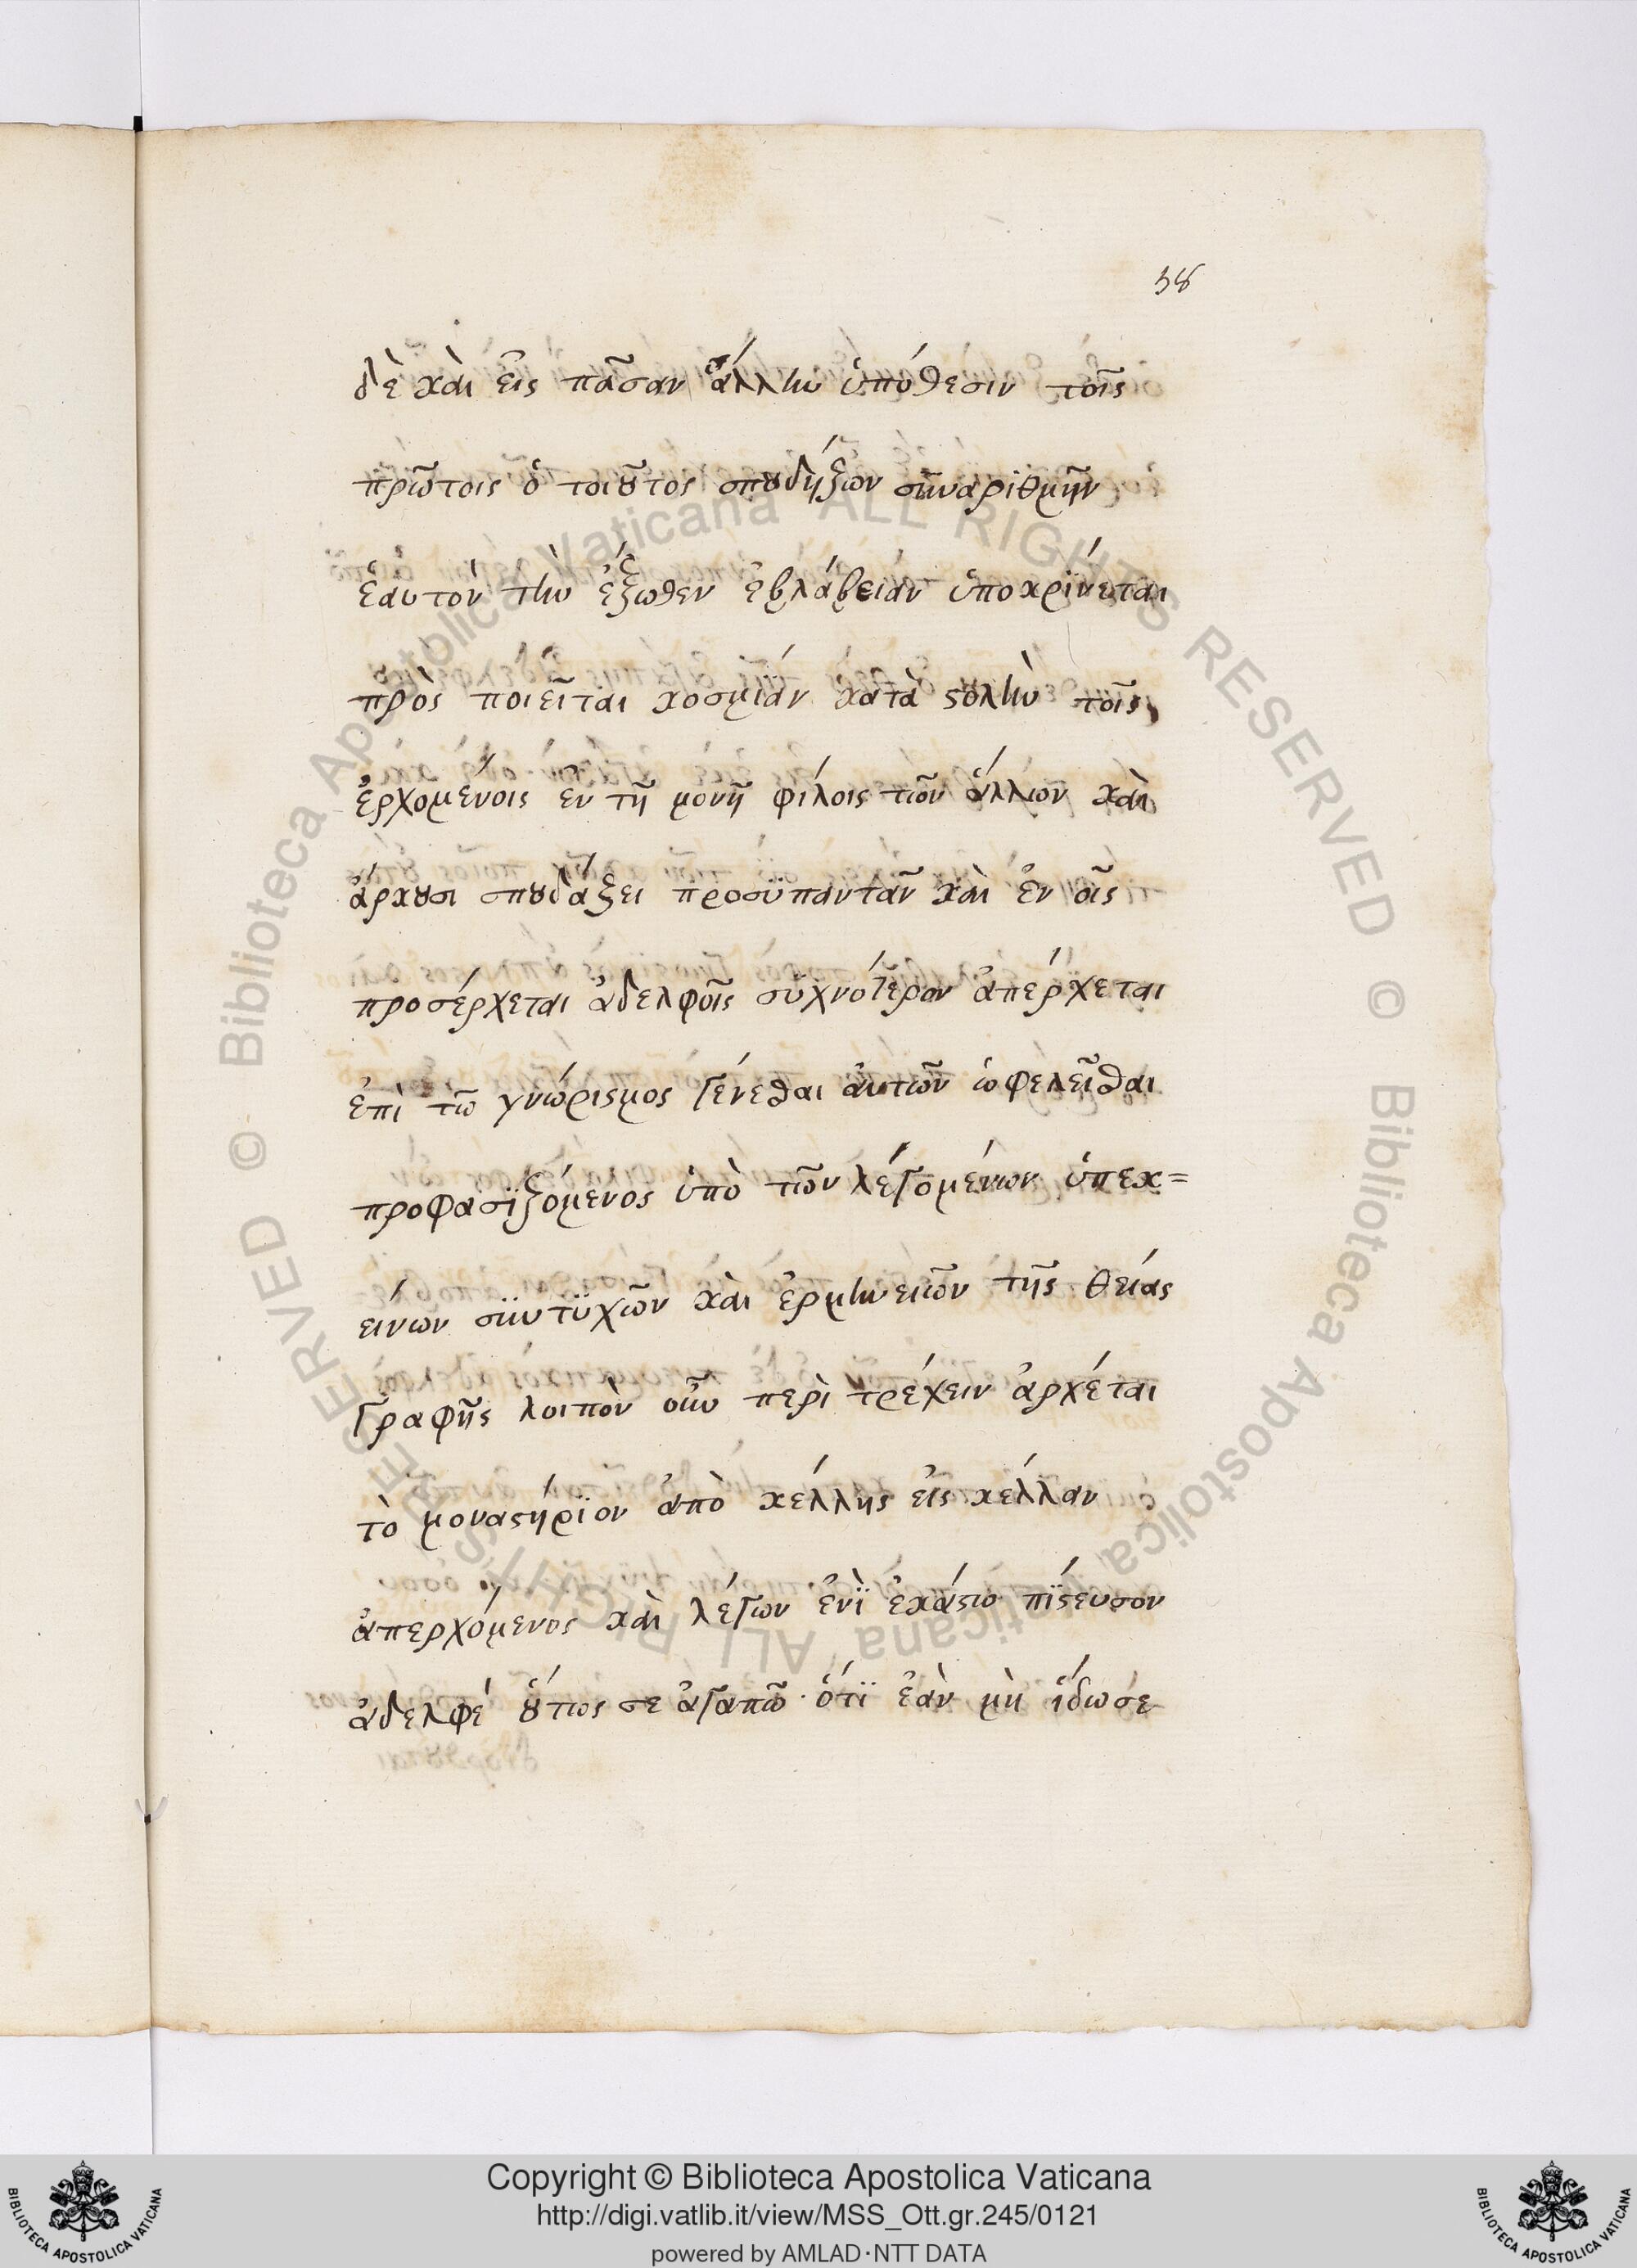 38
δὲ καὶ εἰς πᾶσαν ἄλλην ὑπόθεσιν τοῖς
πρῶτοις ὁ τοιοῦτος σπουδήζων σῢναρἰθμῆν
ἑαυτὸν τὴν ἔξωθεν ἐβλάβειαν ὑποκρίνεται
πρὸς ποιεῖται κοσμίαν κατὰ στολὴν τοῖς
ἐρχομένοις ἐν τῇ μονῇ φίλοις τῶν ἄλλων καὶ
ἄρκουσι σπουδάζει προσϋπαντᾶν καὶ ἐν οἷς
προσέρχεται ἀδελφοῖς συχνότερον ἀπέρχεται
ἐπὶ τῶ γνώρισμος γένεσθαι ἀυτῶν ὠφελεῖσθαι
προφασϊζόμενος ὑπὸ τῶν λέγομένων ὑπεκ=
εινων σϋντϋχῶν καὶ ἑρμηνειῶν τῆς θείας
γραφῆς λοιπὸν οὖν περὶ τρέχειν ἀρχέται
τὸ μοναστήρϊον ἀπὸ κέλλης εἰς κέλλαν
ἀπερχόμενος καὶ λέγων ἑνῒ ἑκάστω πίστευσον
ἀδελφέ οὕτως σε ἀγαπῶ· ὅτϊ ἐὰν μὴ ἴδωσε
Copyright © Biblioteca Apostolica Vaticana
http://digi.vatlib.it/view/MSS_Ott.gr.245/0121
powered by AMLAD·NTT DATA
BIBLIOTECA APOSTOLICA VATICANA
BIBLIOTECA APOSTOLICA VATICANA
© Biblioteca Apostolica Vaticana ALL RIGHTS RESERVED © Biblioteca Apostolica Vaticana ALL RIGHTS RESERVED